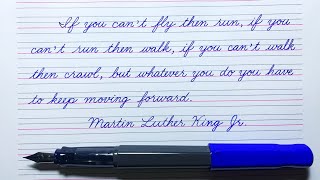 If you can't fly then run, if you
can't run then walk, if you can't walk
then crawl, but whatever you do you have
to keep moving forward.
Martin Luther King Jr.